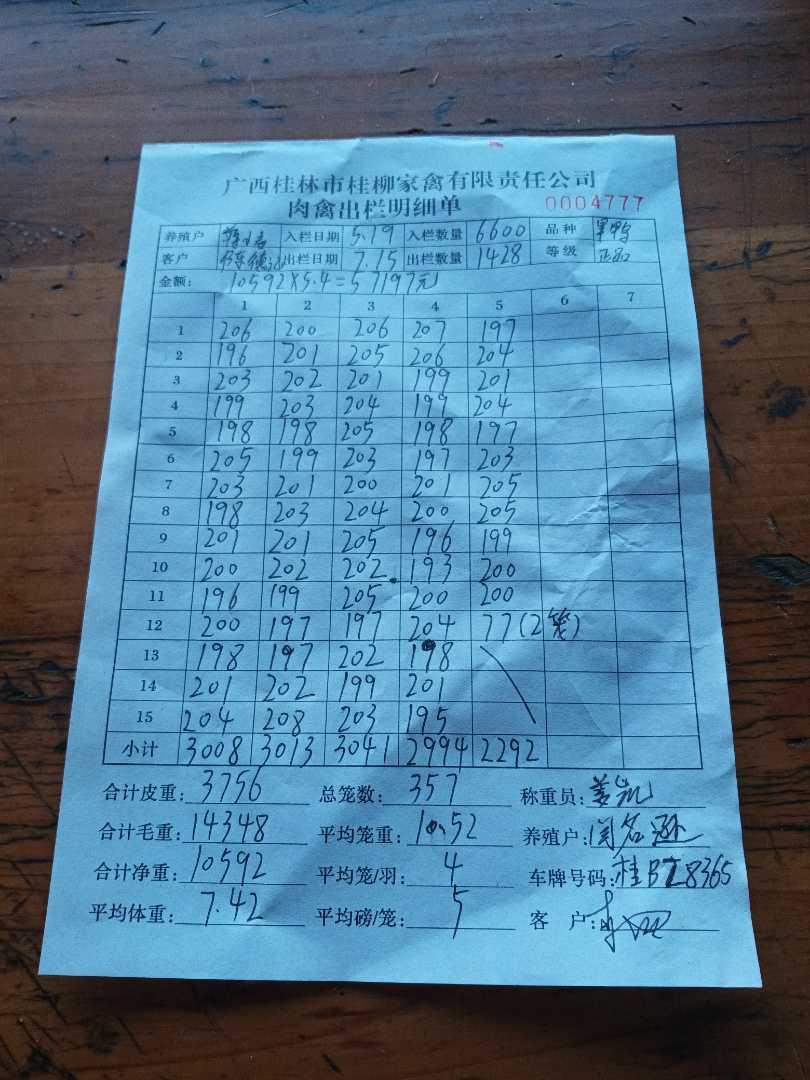 广西桂林市桂柳家禽有限责任公司
肉禽出栏明细单 0004777
养殖户 入栏日期 5.19 入栏数量 6600 品种
客户 出栏日期 7.15 出栏数量 1428 等级 正品
金额: 10592×5.4=57197元
1 2 3 4 5 6 7
1 206 200 206 207 197
2 196 201 205 206 204
3 203 202 201 199 201
4 199 203 204 199 204
5 198 198 205 198 197
6 205 199 203 197 203
7 203 201 200 201 205
8 198 203 204 200 205
9 201 201 205 196 199
10 200 202 202 193 200
11 196 199 205 200 200
12 200 197 197 204 77(2笼)
13 198 197 202 198
14 201 202 199 201
15 204 208 203 195
小计 3008 3013 3041 2994 2292
合计皮重: 3756 总笼数: 357 称重员: 姜凯
合计毛重: 14348 平均笼重: 10.52 养殖户:
合计净重: 10592 平均笼/羽: 4 车牌号码: 桂BZ8365
平均体重: 7.42 平均磅/笼: 5 客 户: